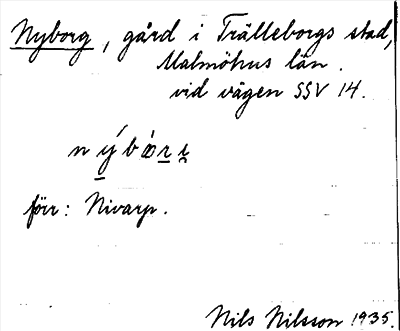 Nyborg, gård i Trälleborgs stad,
Malmöhus län.
vid vägen SSV 14.
förr: Nivarp.
Nils Nilsson 1935.